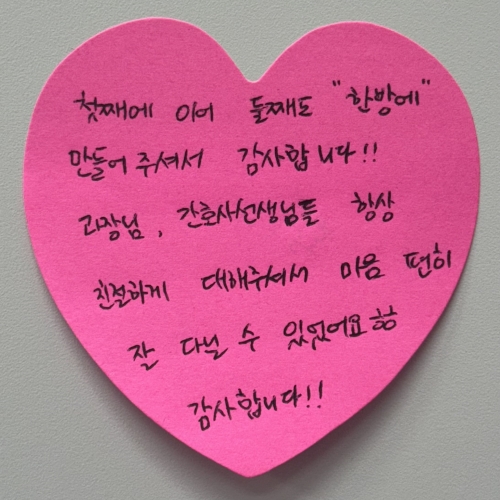 첫째에 이어 둘째도 "한방에"
만들어 주셔서 감사합니다!!
과장님, 간호사선생님들 항상
친절하게 대해주셔서 마음 편히
잘 다닐 수 있었어요ㅎㅎ
감사합니다!!